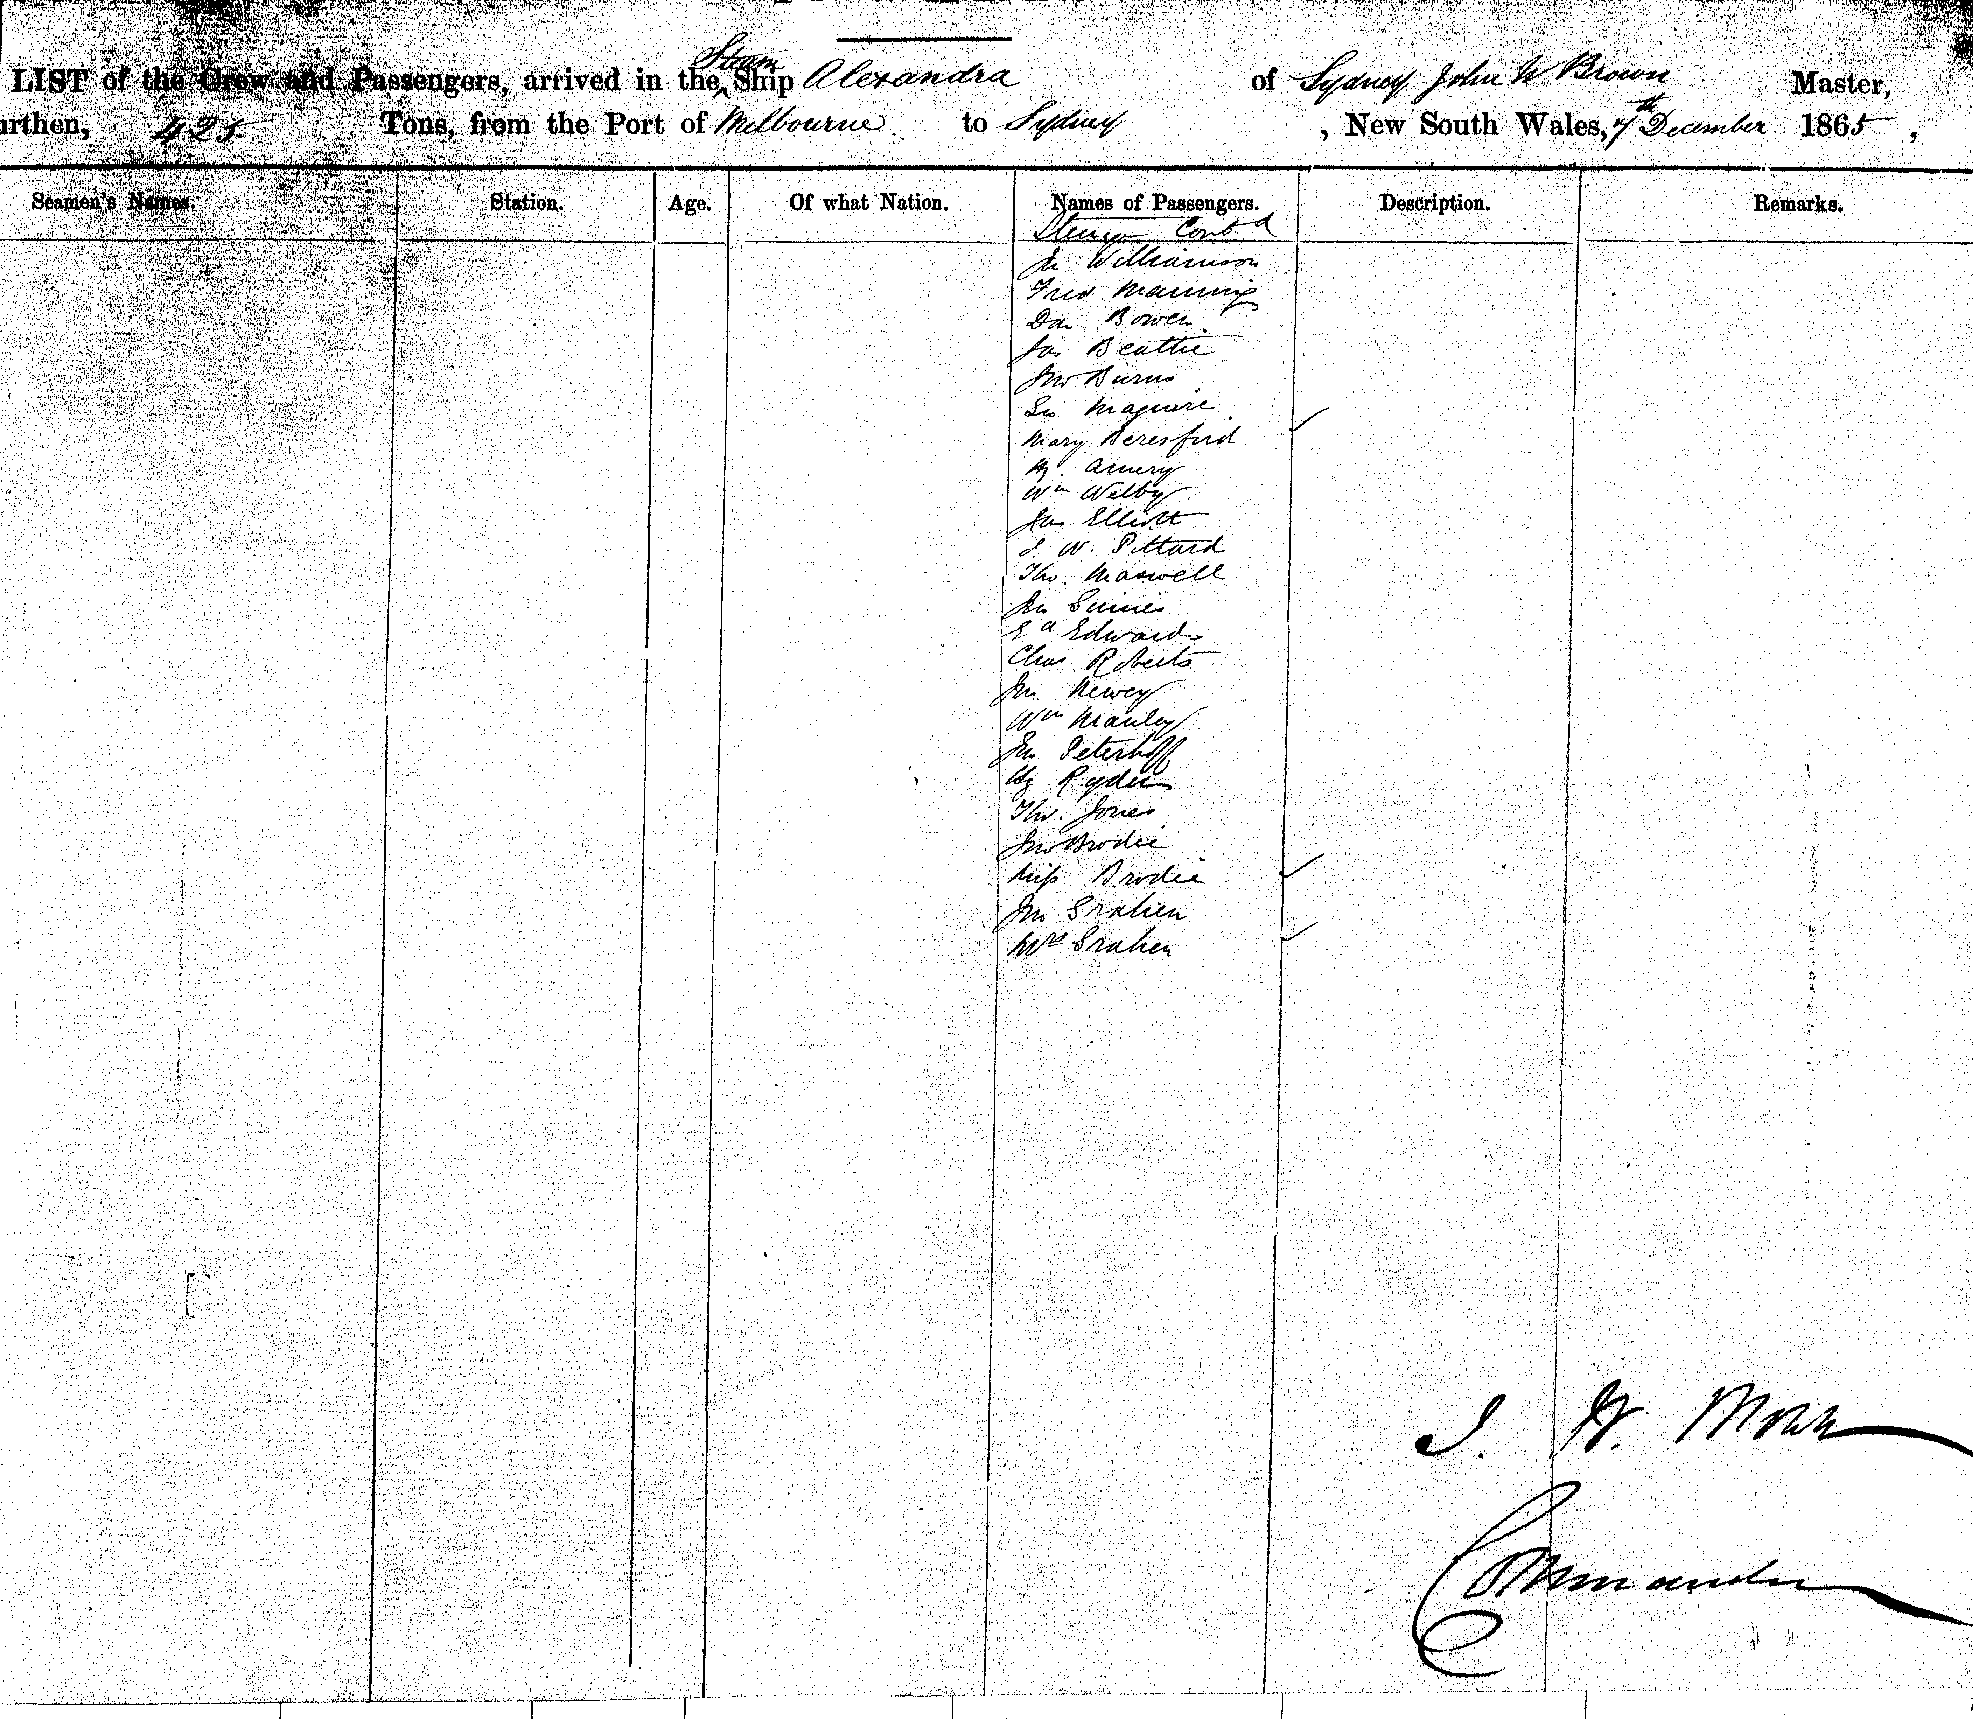 LIST of the Crew and Passengers, arrived in the Steam Ship Alexandra of Sydney John W Brown Master,
urthen, 425 Tons, from the Port of Melbourne to Sydney, New South Wales, 7th December 1865,
Seamen's Names. Station. Age. Of what Nation. Names of Passengers. Description. Remarks.
Contd
Williamson
Fred Manning
Dan Bowen
Jas Beattie
Jno Burns
Maguire
Mary Beresford
Amery
Wm Welby
Jas Elliott
W. Pittard
Thos. Maxwell
Jno
Ed Edwards
Chas Roberts
Jno Newey
Wm Manley
Jno Peterhoff
Hy Ryder
Thos. Jones
Jno Brodie
Miss Brodie
Jno
Mrs
J. W.
Commander